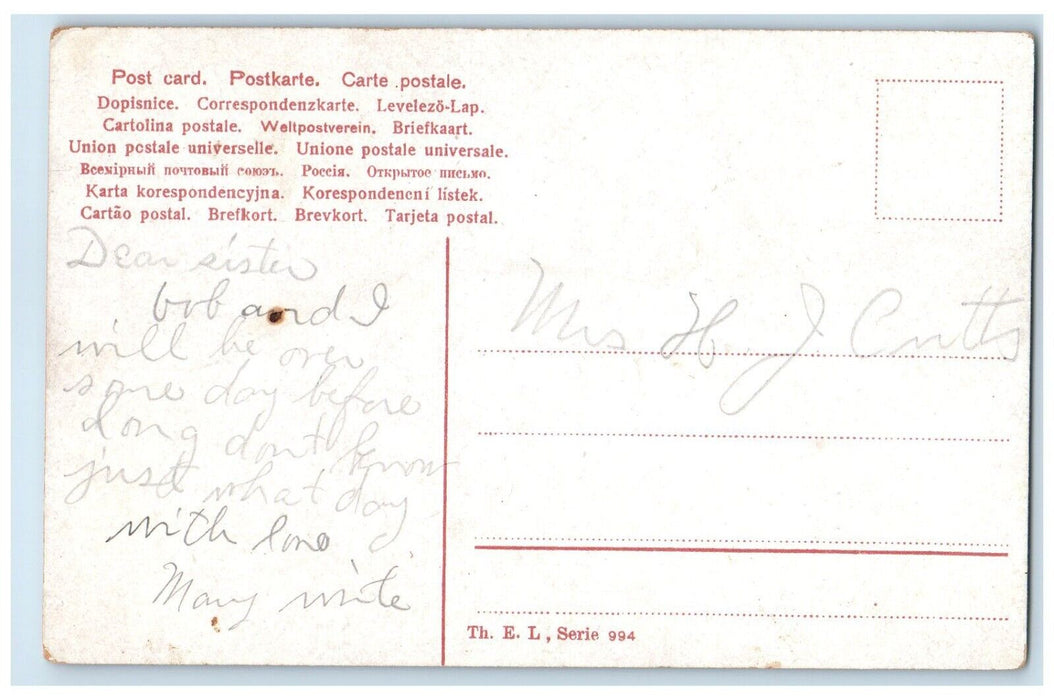 Post card. Postkarte. Carte postale.
Dopisnice. Correspondenzkarte. Levelező-Lap.
Cartolina postale. Weltpostverein. Briefkaart.
Union postale universelle. Unione postale universale.
Всемірный почтовый союзъ. Россія. Открытое письмо.
Karta korespondencyjna. Korespondencní lístek.
Cartão postal. Brefkort. Brevkort. Tarjeta postal.
Dear sister
bob and I
will be over
some day before
long dont know
just what day
with love
Mary write
Mrs H. J. Cutts
Th. E. L, Serie 994